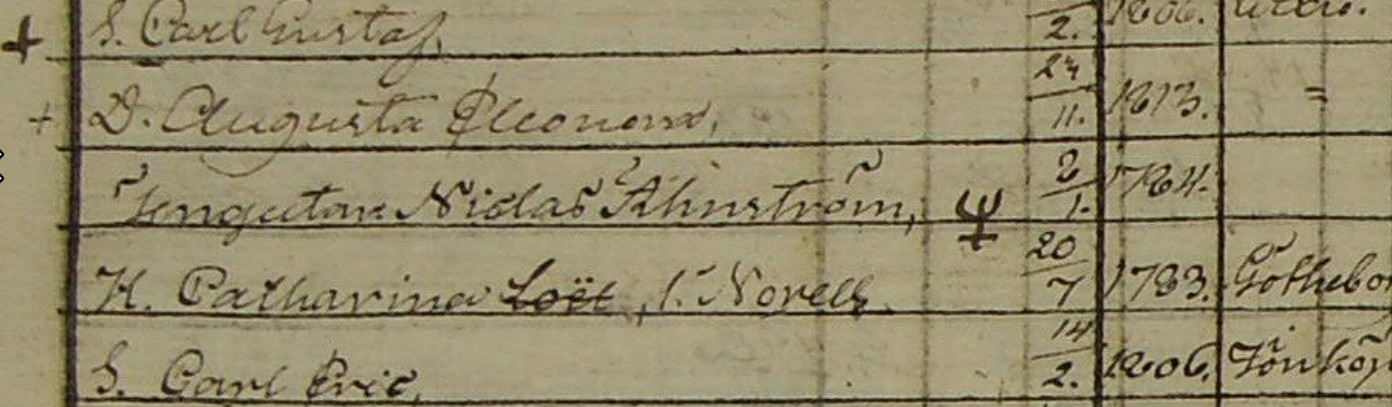 S. Carl Gustaf, 2. 1806.
D. Augusta Eleonora, 24/11. 1813. =
Niclas Ahnström, 2/1. 1784.
H. Catharina Loët, f. Norell 20/7 1783. Göthebo
S. Carl Eric, 14/2. 1806. Jönköp